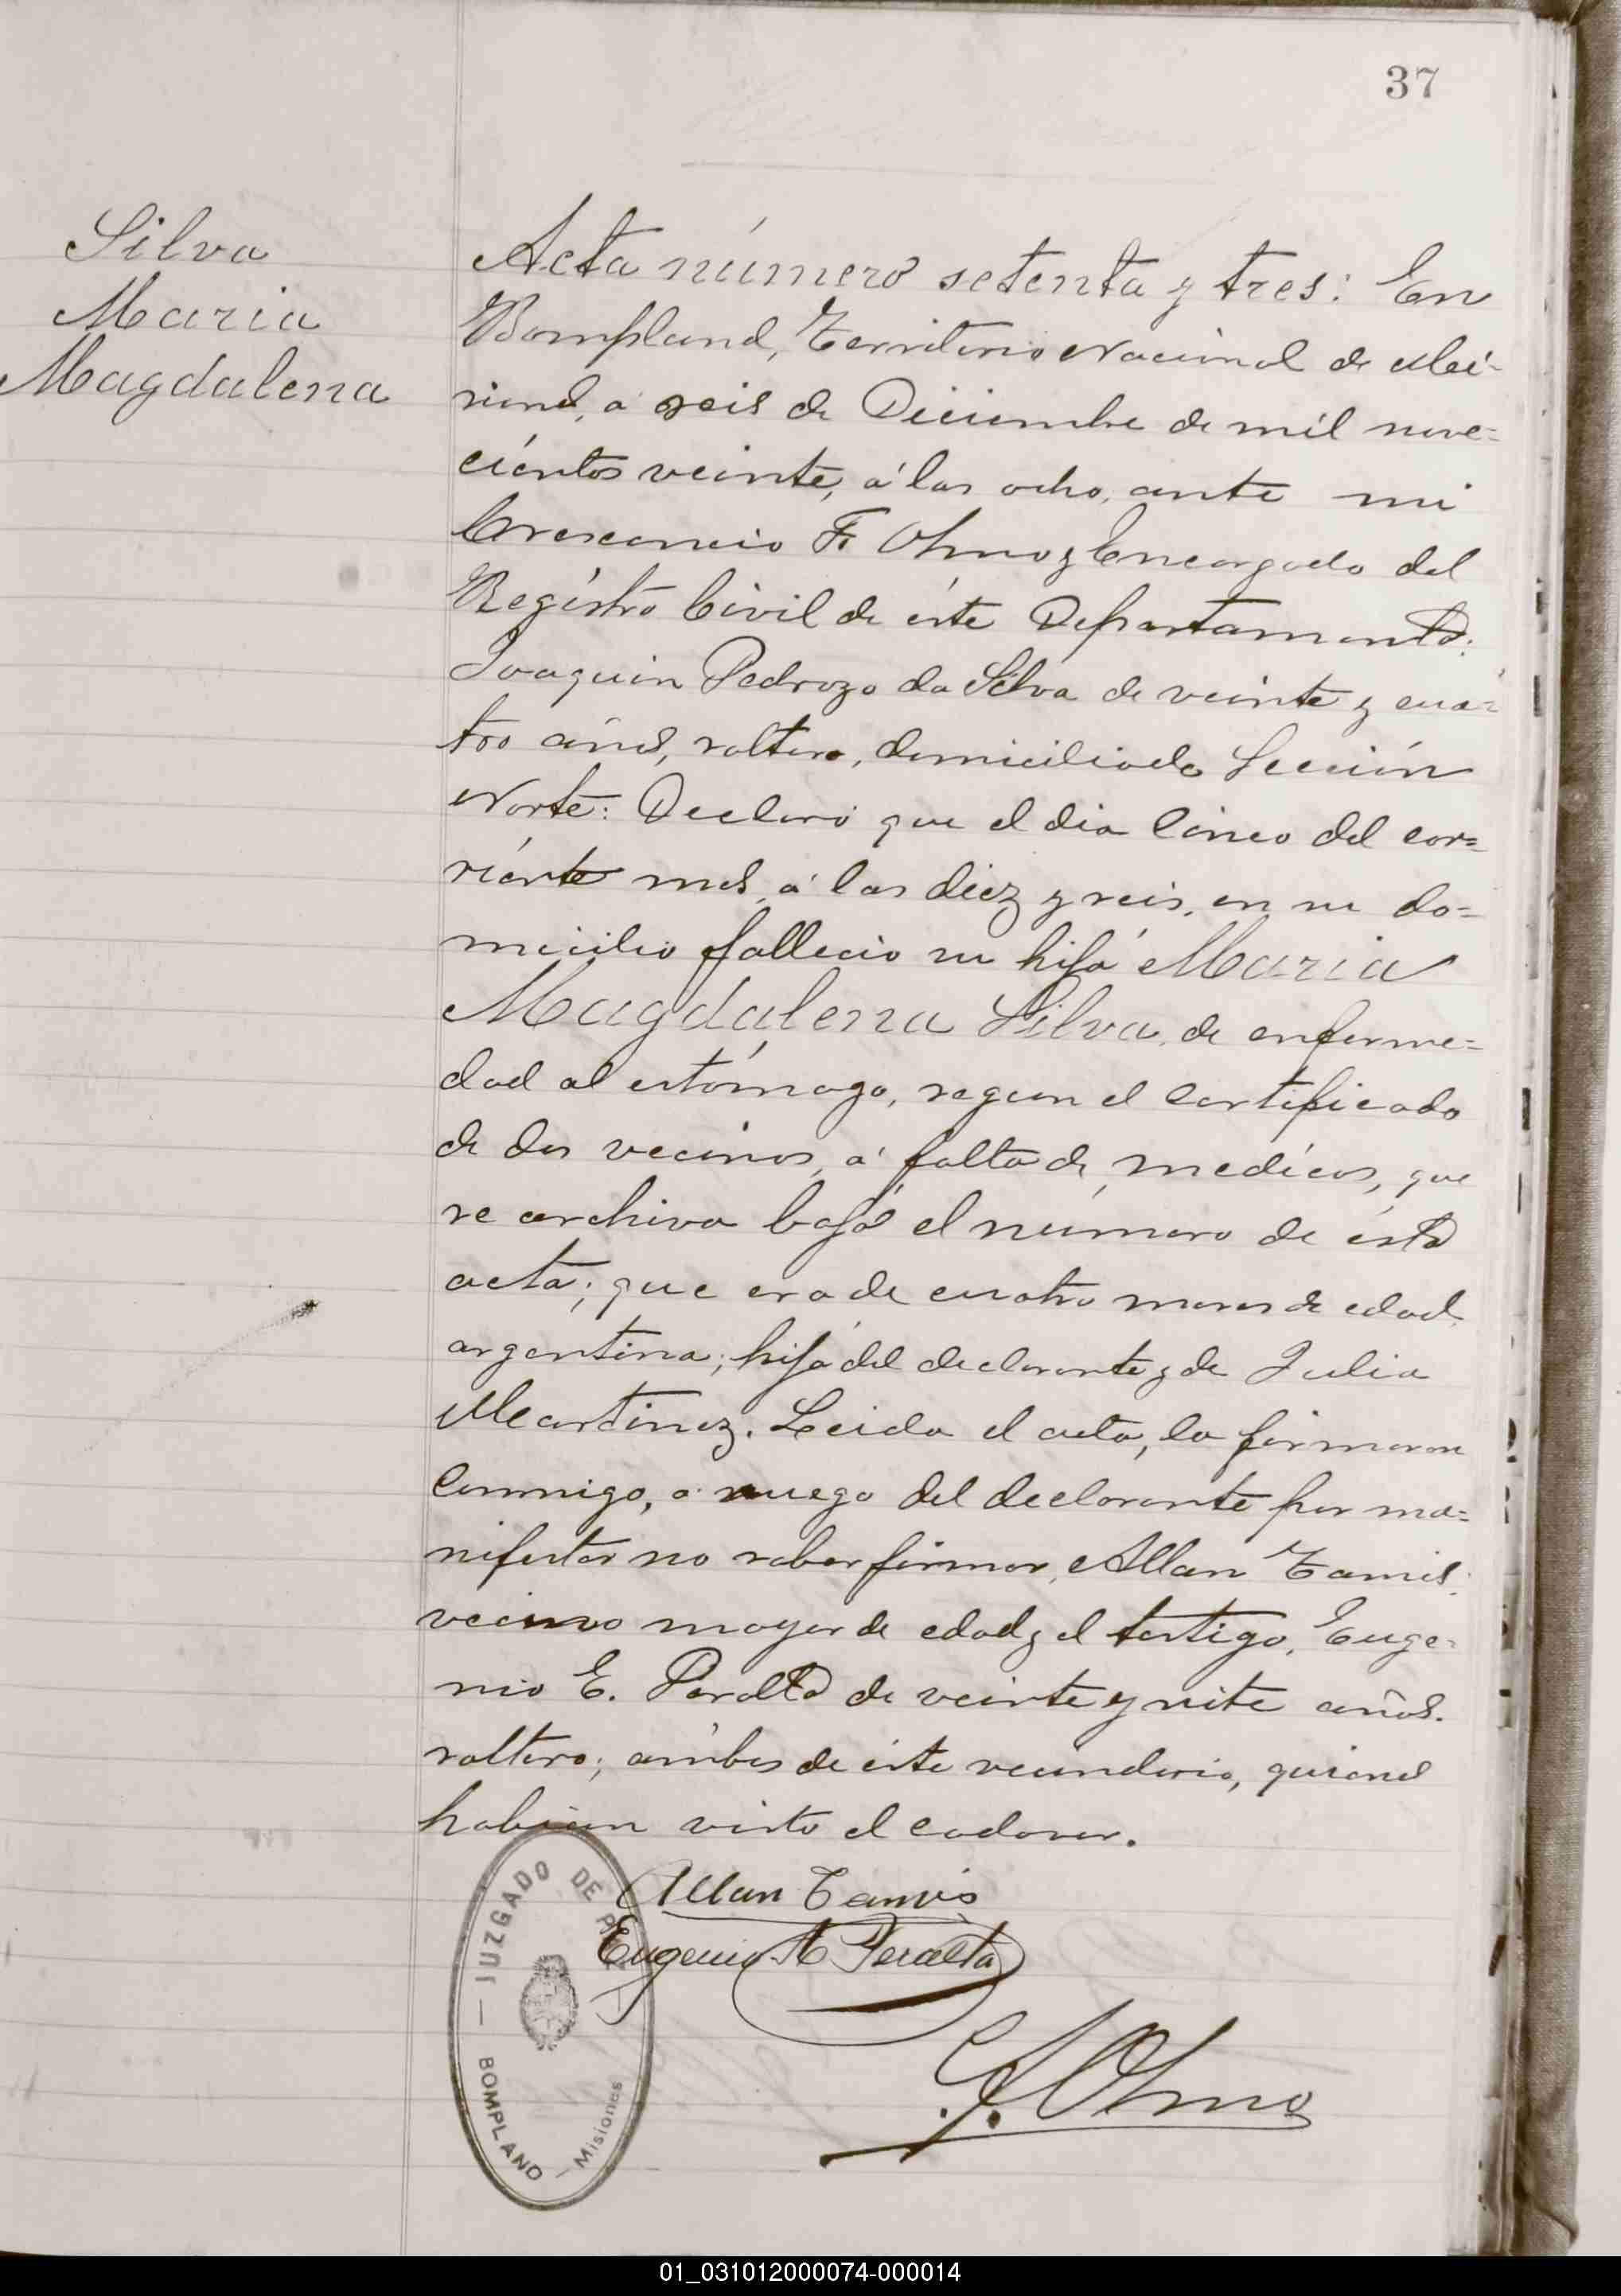 37
Silva
Maria
Magdalena
Acta número setenta y tres: En
Bompland, Territorio Nacional de Mi-
siones, a seis de Diciembre de mil nove=
cientos veinte, á las ocho, ante mi
Crescencio F. Olmo y Encargado del
Registro Civil de éste Departamento:
Joaquin Pedrozo da Silva de veinte y cua=
tro años, soltero, domiciliado Sección
Norte: Declaró que el dia cinco del cor=
riente mes, á las diez y seis, en su do=
micilio fallecio su hija Maria
Magdalena Silva, de enferme=
dad al estómago, segun el certificado
de dos vecinos, á falta de medicos, que
se archiva bajo el número de ésta
acta; que era de cuatro meses de edad,
argentina; hija del declarante y de Julia
Martinez. Leida el acta, la firmaron
conmigo, a ruego del declarante por ma=
nifestar no saber firmar, Allan Tamis,
vecino mayor de edad y el testigo, Euge=
nio E. Peralta de veinte y siete años.
soltero; ambos de éste vecindario, quienes
habian visto el cadaver.
Allan Tamis
Eugenio A Peralta
C. F. Olmo
JUZGADO DE PAZ
BOMPLAND - Misiones
01_031012000074-000014